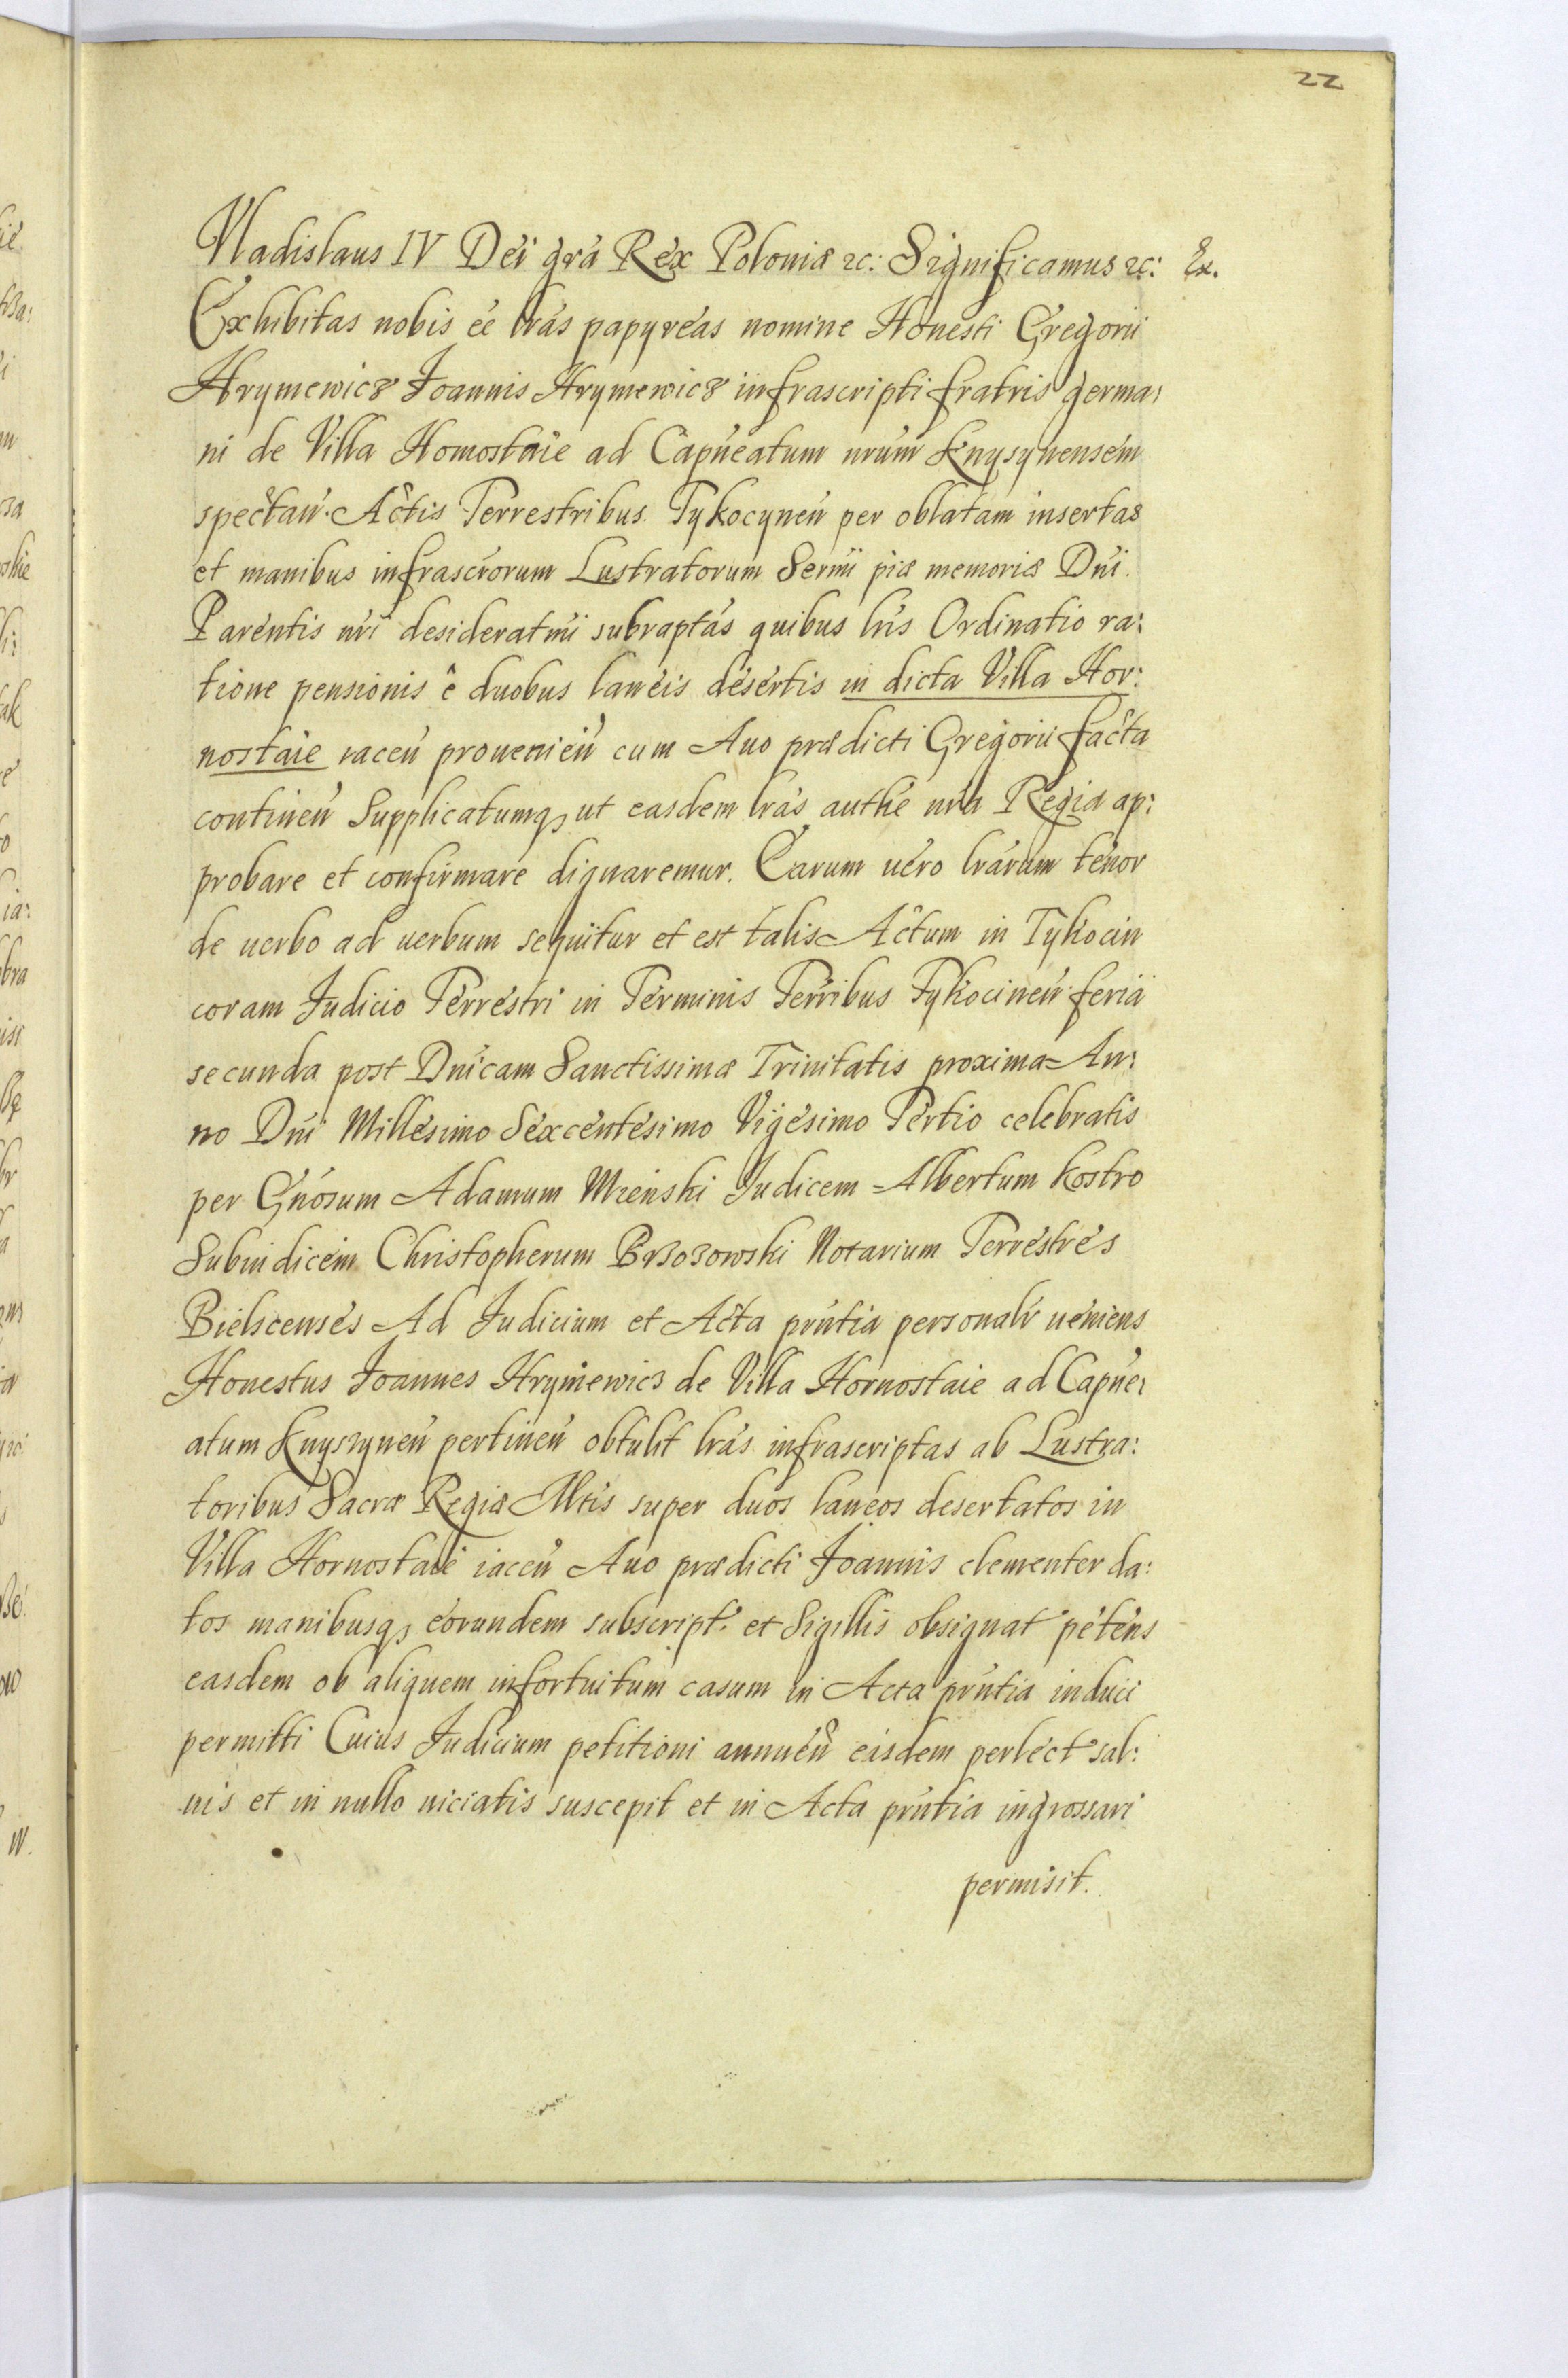 22
Vladislaus IV Dei grá Rex Poloniæ &c: Significamus &c: Ex.
Exhibitas nobis éé lrás papyreas nomine Honesti Gregorii
Hrymewicz Joannis Hrymewicz infrascripti fratris germa:
ni de Villa Homostaie ad Capneatum nrum Knysynensem
spectan. Actis Terrestribus Tykocynen per oblatam insertas
et manibus infrascrorum Lustratorum Sermi piæ memoriæ Dni.
Parentis nri desideratmi subraptás quibus lris Ordinatio ra:
tione pensionis ê duobus laneis desertis in dicta Villa Hor:
nostaie iacen prouenien cum Auo prædicti Gregorii facta
continen Supplicatumq3 ut easdem lrás authe nrá Regia ap:
probare et confirmare dignaremur. Earum uero lrárum tenor
de uerbo ad uerbum sequitur et est talis Actum in Tykocin
coram Judicio Terrestri in Terminis Terribus Tykocinen feria
secunda post Dnicam Sanctissimæ Trinitatis proxima An:
no Dni Millesimo Sexcentesimo Vigesimo Tertio celebratis
per Gnosum Adamum Mienski Judicem Albertum Kostro
Subiudicem Christopherum Brzozowski Notarium Terrestres
Bielscenses Ad Judicium et Acta prntia personalr ueniens
Honestus Joannes Hrymewicz de Villa Hornostaie ad Capne:
atum Knyszynen pertinen obtulit lrás infrascriptas ab Lustra:
toribus Sacræ Regiæ Mtis super duos laneos desertatos in
Villa Hornostaie iacen Auo prædicti Joannis clementer da:
tos manibusq3 eorundem subscript. et Sigillis obsignat petens
easdem ob aliquem infortuitum casum in Acta prntia induci
permitti Cuius Judicium petitioni annuen eisdem perlect sal:
uis et in nullo uiciatis suscepit et in Acta prntia ingrossari
permisit.